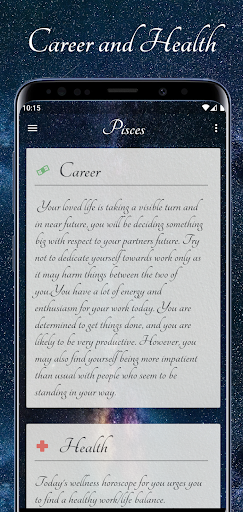 Career and Health
10:15
Pisces
Career
Your loved life is taking a visible turn and
in near future, you will be deciding something
big with respect to your partners future. Try
not to dedicate yourself towards work only as
it may harm things between the two of
you.You have a lot of energy and
enthusiasm for your work today. You are
determined to get things done, and you are
likely to be very productive. However, you
may also find yourself being more impatient
than usual with people who seem to be
standing in your way.
Health
Today's wellness horoscope for you urges you
to find a healthy work/life balance.